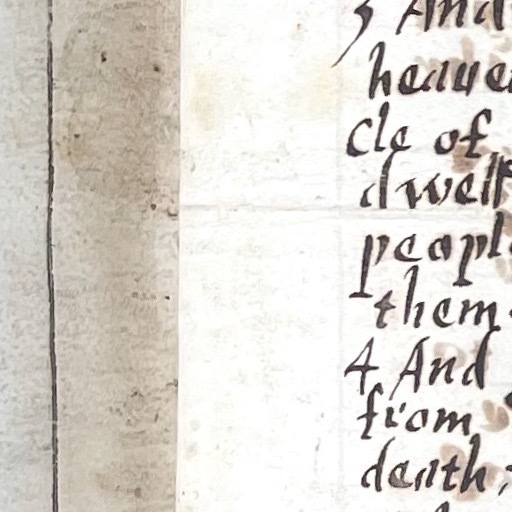 3 And
heaven
cle of
dwell
people
them
4 And
from
death;